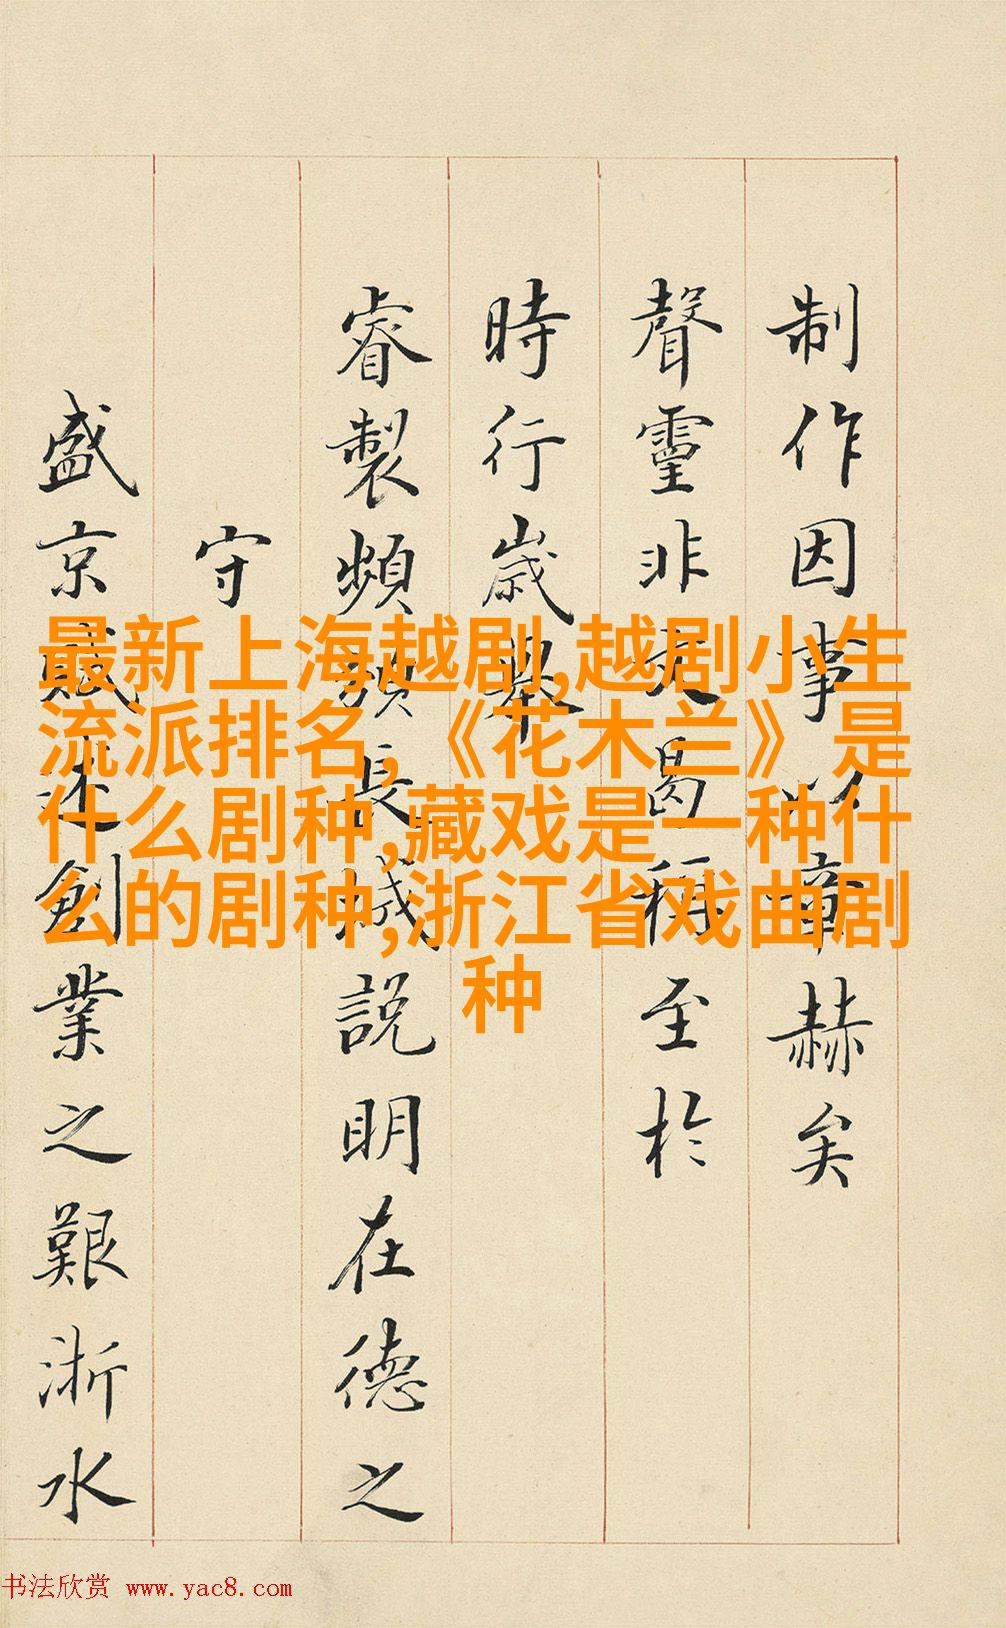 制作因事以章赫矣
聲靈非天曷稱至於
時行歲舉
睿製頻頒長城說明在德之
守
盛京賦述創業之艱浙水
最新上海越剧,越剧小生
流派排名,《花木兰》是
什么剧种,藏戏是一种什
么的剧种,浙江省戏曲剧
种
书法欣赏 www.yac8.com